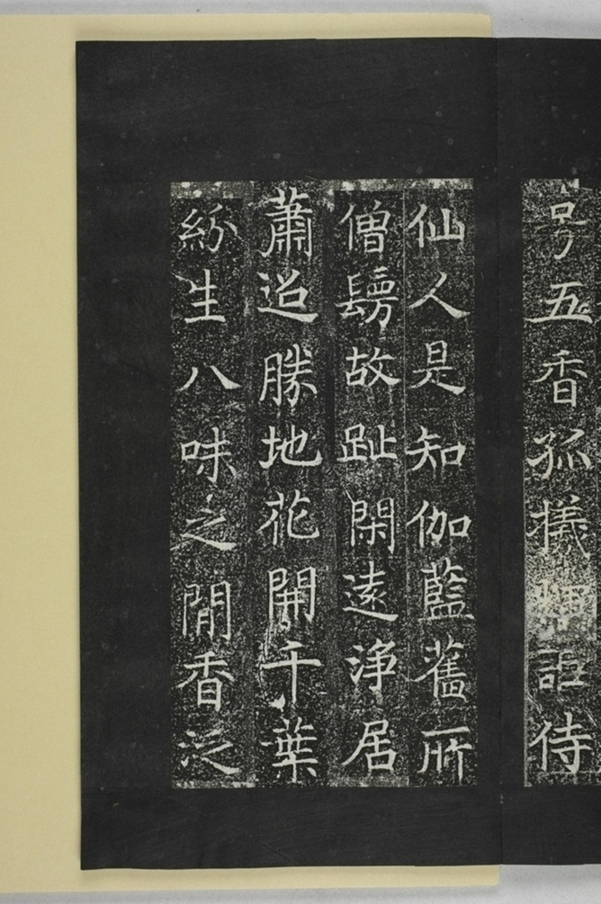 五香孤檥詎侍
仙人是知伽藍舊所
僧故趾閑遠淨居
蕭迢勝地花開千葉
紛生八味之閒香泛